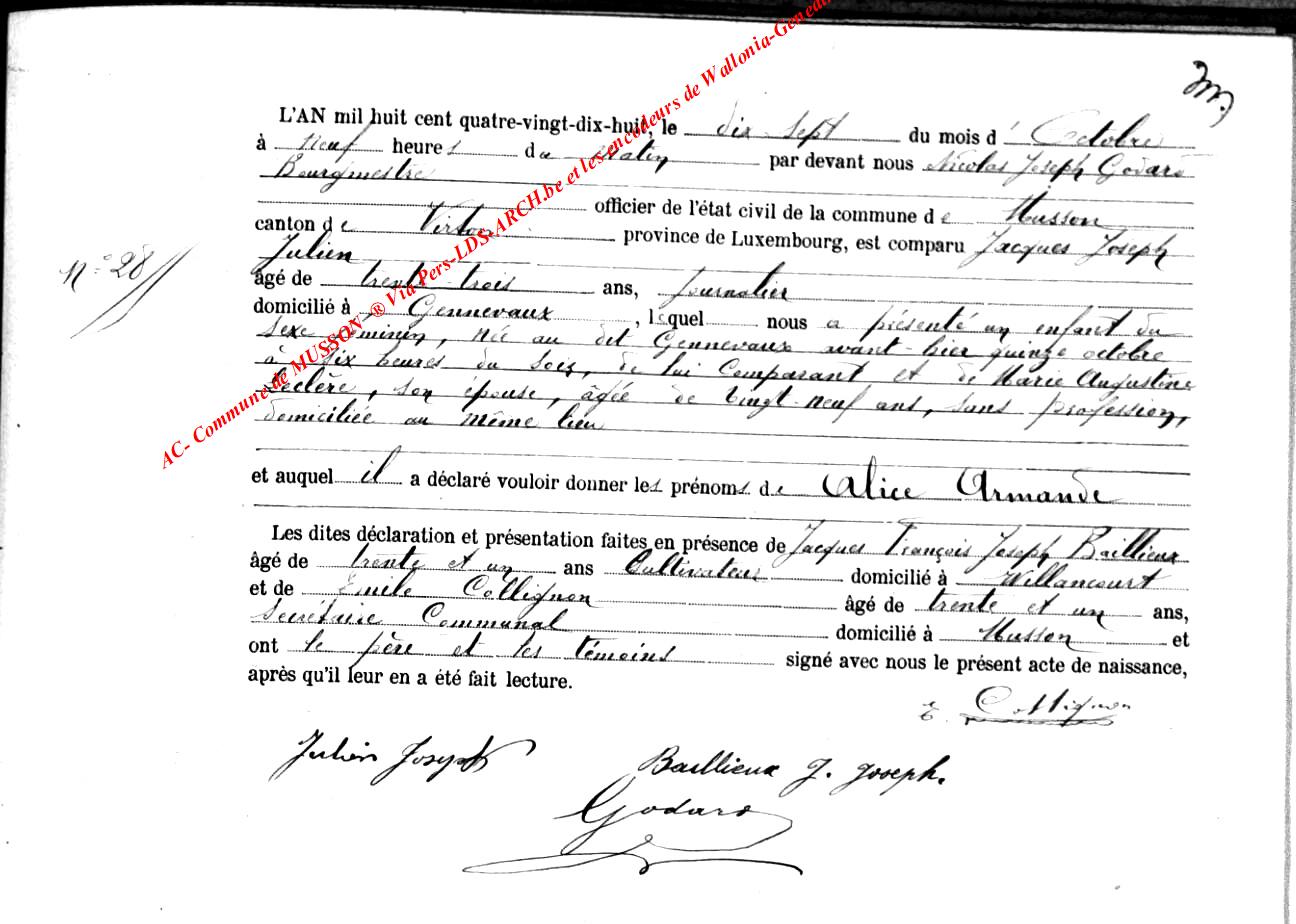 AC- Commune de MUSSON ® Via Pers-LDS-ARCH.be et les encodeurs de Wallonia-Genealo
L'AN mil huit cent quatre-vingt-dix-huit, le dix sept du mois d' Octobre
à neuf heures du matin par devant nous Nicolas Joseph Godard
Bourgmestre
officier de l'état civil de la commune de Musson
canton de Virton province de Luxembourg, est comparu Jacques Joseph
Julien
N° 28
âgé de trente-trois ans, journalier
domicilié à Gennevaux, lequel nous a présenté un enfant du
sexe féminin, née au dit Gennevaux avant-hier quinze octobre
à six heures du soir, de lui comparant et de Marie Augustine
Leclère, son épouse, âgée de vingt-neuf ans, sans profession,
domiciliée au même lieu
et auquel il a déclaré vouloir donner les prénoms de Alice Armande
Les dites déclaration et présentation faites en présence de Jacques François Joseph Baillieux
âgé de trente et un ans Cultivateur domicilié à Willancourt
et de Emile Collignon âgé de trente et un ans,
Secrétaire Communal domicilié à Musson et
ont le père et les témoins signé avec nous le présent acte de naissance,
après qu'il leur en a été fait lecture.
E. Collignon
Julien Joseph
Baillieux J. Joseph.
Godard